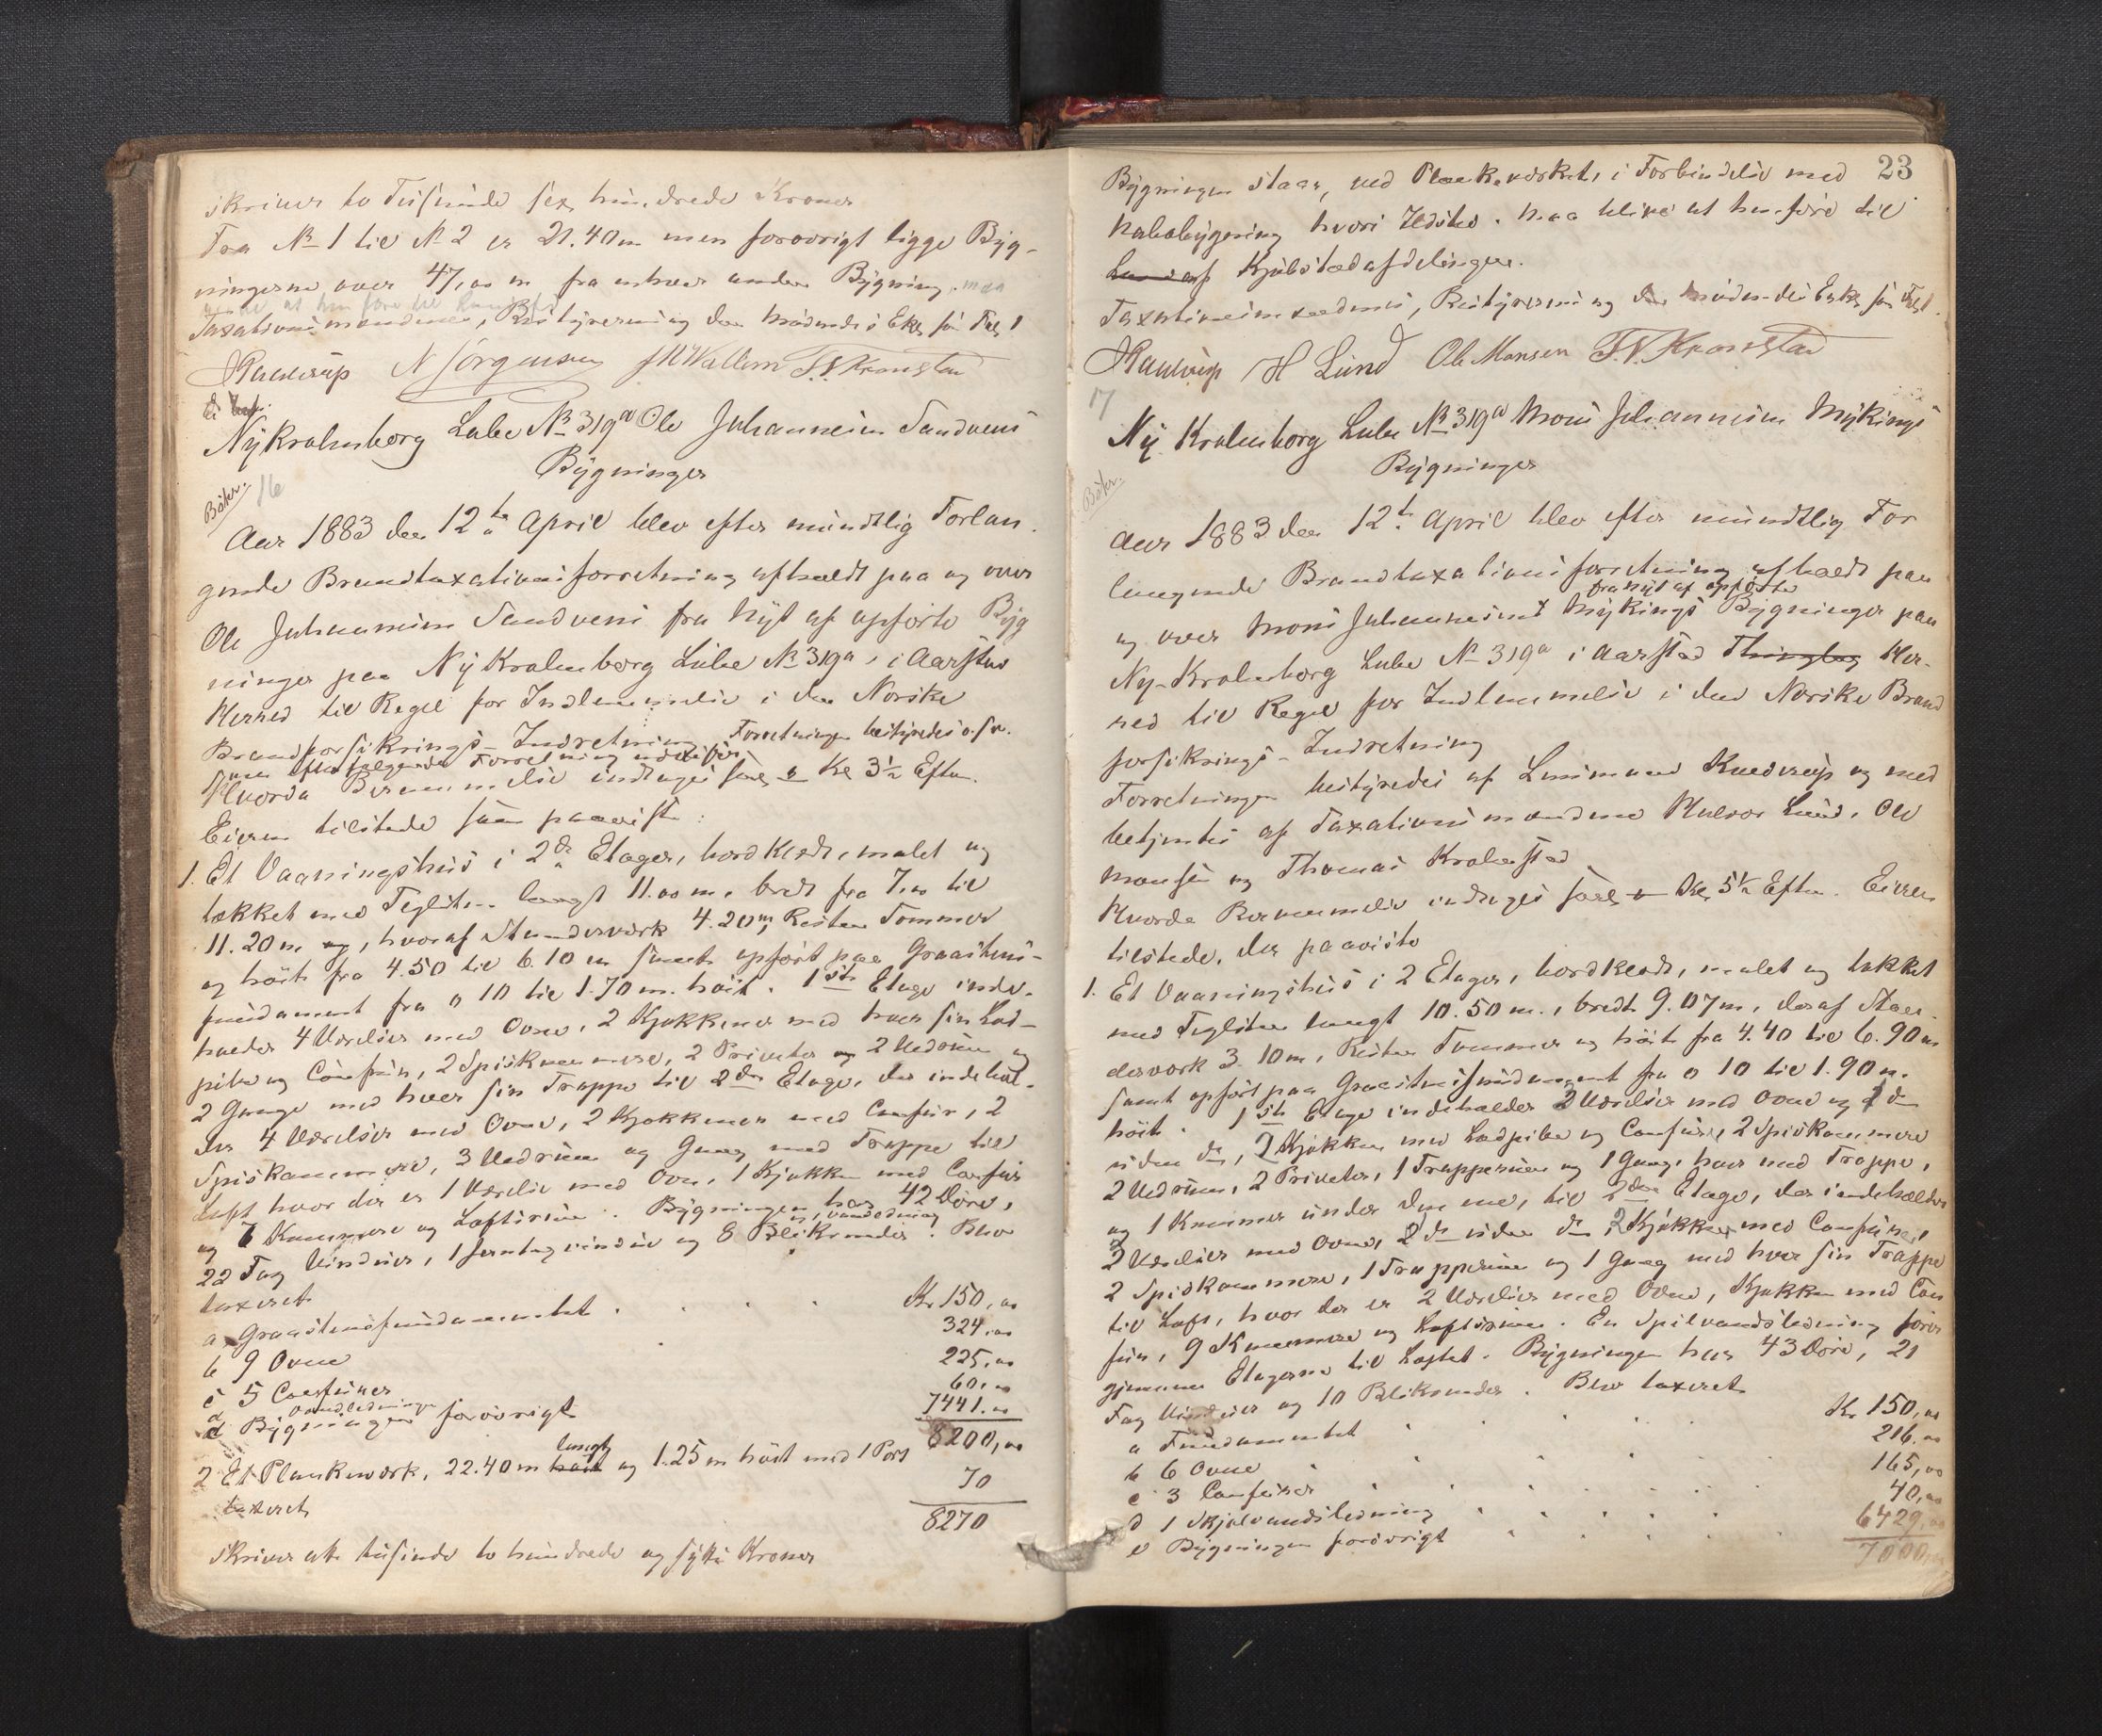 skriver to Tusinde sex hundrede Kroner
Fra No 1 til No 2 er 21.40 m men forøvrigt ligge Byg-
ningerne over 47,00 m fra enhver anden Bygning. maa
Taxationsmændenes, Bestyrerens og den mødendes Eks. for Tax
Raaverup N Jörgensen Wallem T. N. Kronstad
Ny Krohnborg Lube No 319a Ole Johannesen Sandvens
Bygninger
Bøkr. 16
Aar 1883 den 12te April blev efter mundtlig Forlan-
gende Brandtaxationsforretning afholdt paa og over
Ole Johannesen Sandvens fra Nyt af opførte Byg
ninger paa Ny Krohnborg Lube No 319a, i Aarstad
Herred til Regel for Indlemmelse i den Norske
Brandforsikrings-Indretning Forretningen bestyredes o. s. v.
som efterfølgende Forretning udviser
Hvorda Benummelse indtages Kl 3½ Eftm.
Eieren tilstede som paaviste:
1. Et Vaaningshus i 2de Etager, bordklædt, malet og
tækket med Teglsten langt 11.00 m, bredt fra 7.00 til
11.20 m, hvoraf Stenderværk 4.20 m, Resten Tømmer
og høit fra 4.50 til 6.10 m samt opført paa Graastens-
fundament fra 0 10 til 1.70 m. høit. 1ste Etage inde-
holder 4 Værelser med Ovne, 2 Kjøkkener med hver sin Lad-
pibe og Comfur, 2 Spiskammere, 2 Priveter og 2 Vedrum og
2 Gange med hver sin Trappe til 2den Etage, der indehol-
der 4 Værelser med Ovne, 2 Kjøkkener med Comfur, 2
Spiskammere, 3 Vedrum og Gang med Trappe til
Loft hvor der er 1 Værelse med Ovn, 1 Kjøkken med Comfur
og 7 Kammere og Loftsrum. Bygningen har 42 Døre,
vandledning
22 Fag Vinduer, 1 og 8 Blikrender. Blev
taxeret
a Graastensfundamentet . . . Kr 150,00
b 9 Ovne 324.00
c 5 Comfurer 225,00
d Vandledninger 60,00
e Bygningen forøvrigt 7441.00
8200,00
2 Et Plankeværk, 22.40 m langt og 1.25 m høit med 1 Port
taxeret 70
8270
skriver otte tusinde to hundrede og sytti Kroner
23
Bygningen staar, ved Plankeværket, i Forbindelse med
Nabobygning hvori Ildsted. maa blive at henføre til
Kjøbstadafdelingen.
Taxationsmændenes, Bestyrerens og den mødendes Eks. for Tax.
Raaverup H Lund Ole Monsen T. N. Kronstad
17
Ny Krohnborg Lube No 319a Mons Johannesen Mykings
Bygninger
Bøkr.
Aar 1883 den 12te April blev efter mundtlig For
langende Brandtaxationsforretning afholdt paa
fra Nyt af opførte
og over Mons Johannesens Mykings Bygninger paa
Ny-Krohnborg Lube No 319a i Aarstad Thinglag Her-
red til Regel for Indlemmelse i den Norske Brand
forsikrings-Indretning
Forretningen bestyredes af Lensmand Raaverup og med
betjentes af Taxationsmændene Halvor Lund, Ole
Monsen og Thomas Krohnstad
Hvorda Benummelse indtages Kl 5½ Eftm. Eieren
tilstede, der paaviste
1. Et Vaaningshus i 2 Etager, bordklædt, malet og tækket
med Teglsten langt 10.50 m., bredt 9.07 m, deraf Sten-
derværk 3.10 m, Resten Tømmer og høit fra 4.40 til 6.90 m
samt opført paa Graastensfundament fra 0 10 til 1.90 m.
høit. 1ste Etage indeholder 2 Værelser med Ovne og 2 do
uden do, 2 Kjøkken med Ladpibe og Comfurer, 2 Spiskammere
2 Vedrum, 2 Priveter, 1 Trapperum og 1 Gang, hver med Trappe,
og 1 Kammer under den ene, til 2den Etage, der indeholder
2 Værelser med Ovne, 2 do uden do 2 Kjøkkener med Comfurer,
2 Spiskammere, 1 Trapperum og 1 Gang med hver sin Trappe
til Loft, hvor der er 2 Værelser med Ovne, Kjøkken med Com
fur, 9 Kammere og Loftsrum. En Spilvandsledning fører
gjennem Etagerne til Loftet. Bygningen har 43 Døre, 21
Fag Vinduer og 10 Blikrender. Blev taxeret
a Fundamentet . . . Kr 150,00
b 6 Ovne . . . 216.00
c 3 Comfurer . . . 165,00
d 1 Skjølvandsledning . . . 40,00
e Bygningen forøvrigt . . . 6429,00
7000,00